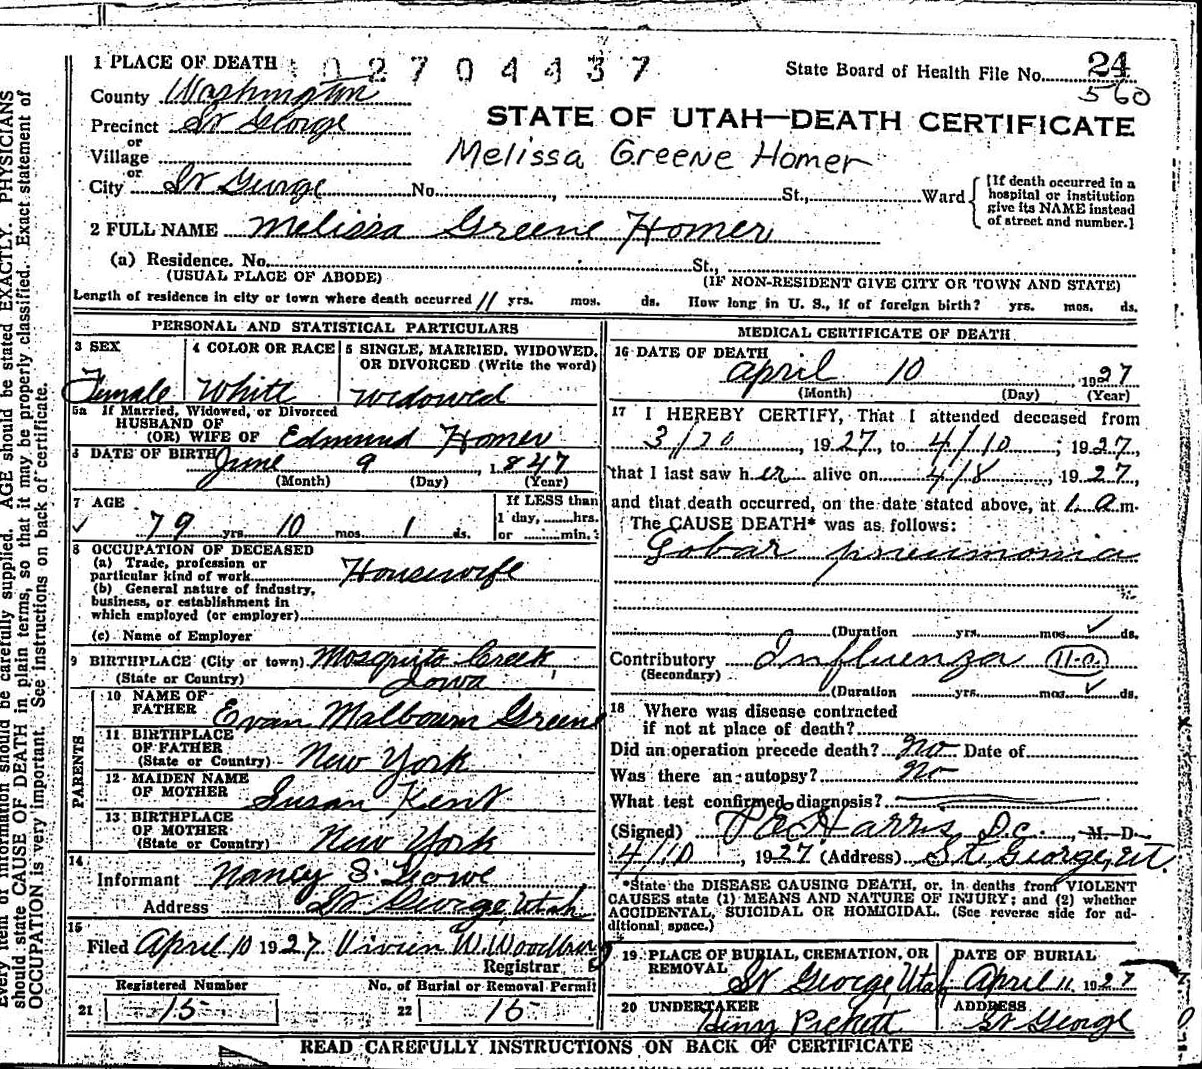 1 PLACE OF DEATH
02704437
State Board of Health File No. 24
560
County Washington
Precinct St George
or
Village
or
City St George No. St., Ward
[If death occurred in a hospital or institution give its NAME instead of street and number.]
STATE OF UTAH—DEATH CERTIFICATE
Melissa Greene Homer
2 FULL NAME Melissa Greene Homer
(a) Residence. No. St.,
(USUAL PLACE OF ABODE) (IF NON-RESIDENT GIVE CITY OR TOWN AND STATE)
Length of residence in city or town where death occurred 11 yrs. mos. ds. How long in U. S., if of foreign birth? yrs. mos. ds.
PERSONAL AND STATISTICAL PARTICULARS
3 SEX
Female
4 COLOR OR RACE
White
5 SINGLE, MARRIED, WIDOWED, OR DIVORCED (Write the word)
Widowed
5a If Married, Widowed, or Divorced
HUSBAND OF
(OR) WIFE OF Edmund Homer
6 DATE OF BIRTH June 9, 1847
(Month) (Day) (Year)
7 AGE
79 yrs. 10 mos. 1 ds.
If LESS than
1 day, hrs.
or min.
8 OCCUPATION OF DECEASED
(a) Trade, profession or
particular kind of work Housewife
(b) General nature of industry,
business, or establishment in
which employed (or employer)
(c) Name of Employer
9 BIRTHPLACE (City or town) Mosquito Creek
(State or Country) Iowa
PARENTS
10 NAME OF
FATHER Evan Malbourn Greene
11 BIRTHPLACE
OF FATHER
(State or Country) New York
12 MAIDEN NAME
OF MOTHER Susan Kent
13 BIRTHPLACE
OF MOTHER
(State or Country) New York
14
Informant Nancy S. Lowe
Address St George, Utah
15
Filed April 10 1927 Vivien W. Woodbury
Registrar
Registered Number No. of Burial or Removal Permit
21 15 22 15
MEDICAL CERTIFICATE OF DEATH
16 DATE OF DEATH
April 10, 1927
(Month) (Day) (Year)
17 I HEREBY CERTIFY, That I attended deceased from
3/20, 1927, to 4/10, 1927,
that I last saw her alive on 4/8, 1927,
and that death occurred, on the date stated above, at 1 a m.
The CAUSE DEATH* was as follows:
Lobar pneumonia
(Duration yrs. mos. ds.
Contributory Influenza 11-a
(Secondary)
(Duration yrs. mos. ds.
18 Where was disease contracted
if not at place of death?
Did an operation precede death? no Date of
Was there an autopsy? no
What test confirmed diagnosis?
(Signed) Harris, D.C., M. D.
4/10, 1927 (Address) St. George, Ut.
*State the DISEASE CAUSING DEATH, or, in deaths from VIOLENT
CAUSES state (1) MEANS AND NATURE OF INJURY; and (2) whether
ACCIDENTAL, SUICIDAL OR HOMICIDAL. (See reverse side for ad-
ditional space.)
19 PLACE OF BURIAL, CREMATION, OR
REMOVAL St George, Utah
DATE OF BURIAL
April 11, 1927
20 UNDERTAKER
Henry Pickett
ADDRESS
St George
READ CAREFULLY INSTRUCTIONS ON BACK OF CERTIFICATE
Every item of information should be carefully supplied. AGE should be stated EXACTLY. PHYSICIANS
should state CAUSE OF DEATH in plain terms, so that it may be properly classified. Exact statement of
OCCUPATION is very important. See instructions on back of certificate.